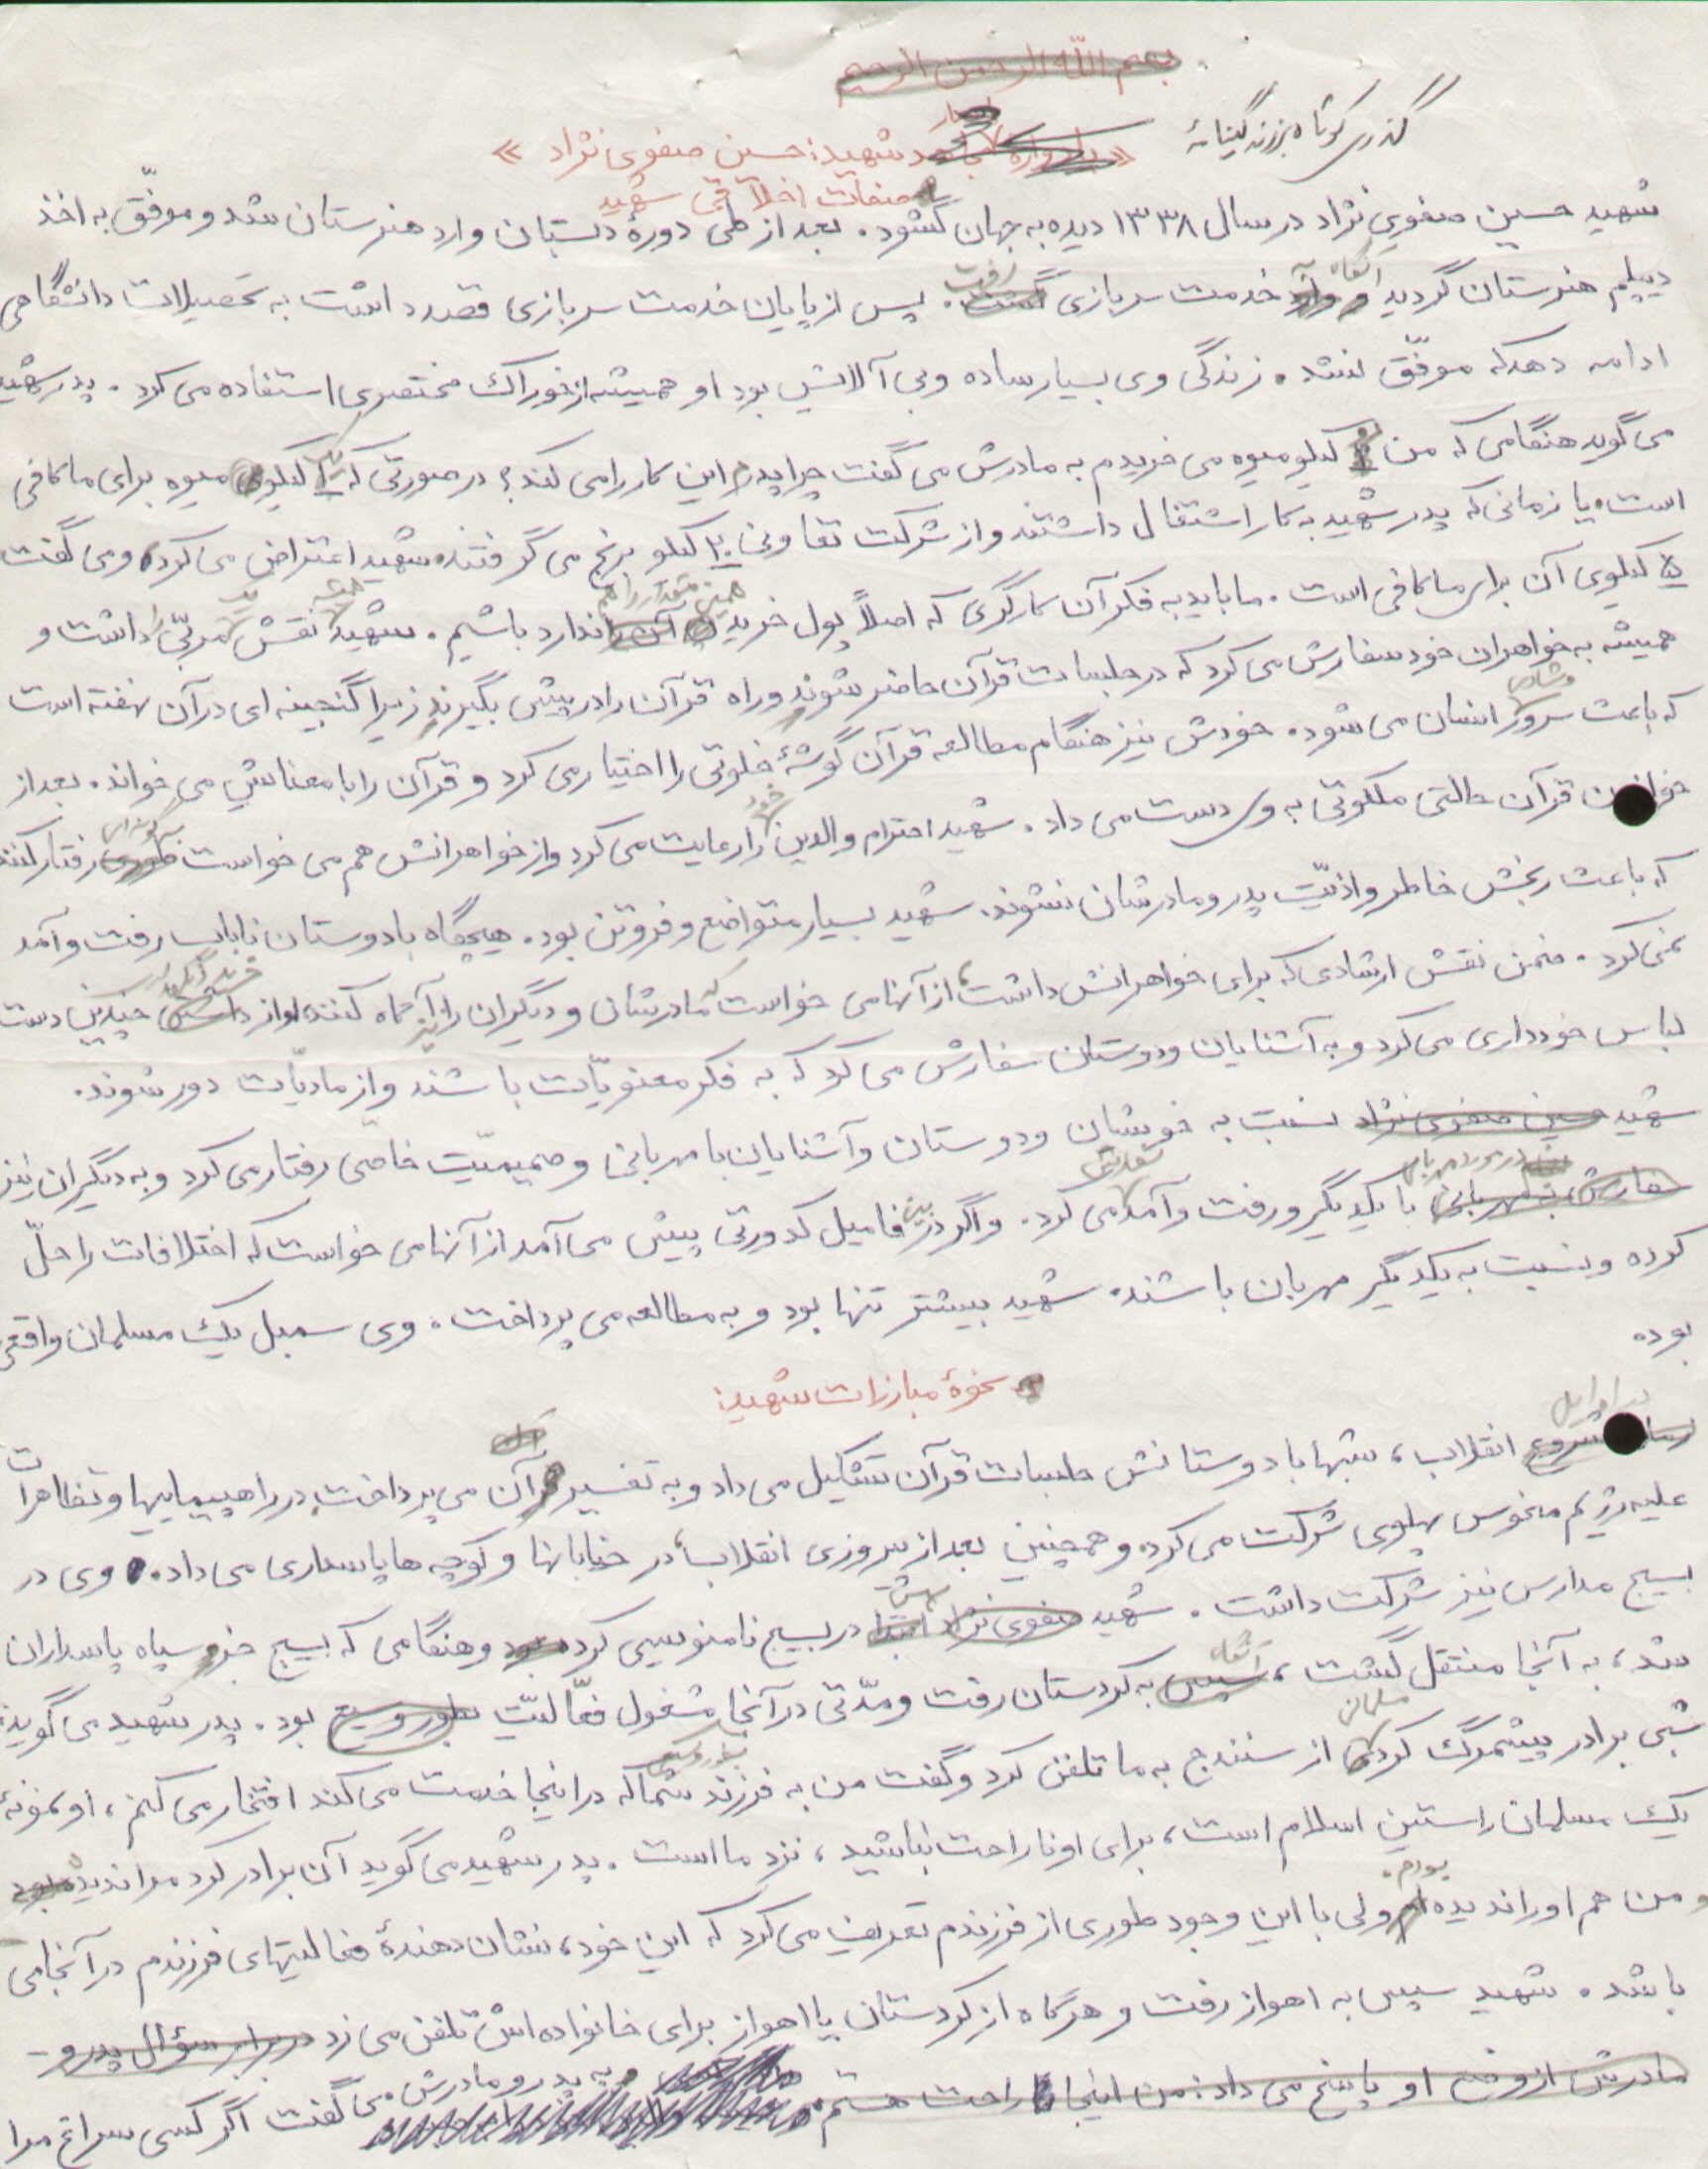 بسم الله الرحمن الرحیم
گذری کوتاه بر زندگینامهٔ
« شهید: حسین صفوی نژاد »
صفات اخلاقی شهید
شهید حسین صفوی نژاد در سال ۱۳۳۸ دیده به جهان گشود. بعد از طی دورهٔ دبستان وارد هنرستان شد و موفّق به اخذ
دیپلم هنرستان گردید آنگاه خدمت سربازی رفت. پس از پایان خدمت سربازی، قصد داشت به تحصیلات دانشگاهی
ادامه دهد که موفّق نشد. زندگی وی بسیار ساده و بی آلایش بود او همیشه از خوراک مختصری استفاده می کرد. پدر شهید
می گوید هنگامی که من کیلو میوه می خریدم به مادرش می گفت چرا پدر این کار را می کند؟ در صورتی که کیلو میوه برای ما کافی
است. یا زمانی که پدر شهید به کار اشتغال داشتند و از شرکت تعاونی ۲۰ کیلو برنج می گرفتند، شهید اعتراض می کرد و می گفت
۵ کیلوی آن برای ما کافی است. ما باید به فکر آن کارگری که اصلاً پول خرید همین مقدار را هم ندارد باشیم. شهید همیشه نقش مربّی را داشت و
همیشه به خواهران خود سفارش می کرد که در جلسات قرآن حاضر شوند و راه قرآن را در پیش بگیرند زیرا گنجینه ای در آن نهفته است
که باعث سرور و شادی انسان می شود. خودش نیز هنگام مطالعه قرآن گوشهٔ خلوتی را اختیار می کرد و قرآن را با معنایش می خواند. بعد از
خواندن قرآن حالتی ملکوتی به وی دست می داد. شهید احترام والدین خود را رعایت می کرد و از خواهرانش هم می خواست گونه ای رفتار کنند
که باعث رنجش خاطر و اذیّت پدر و مادرشان نشوند. شهید بسیار متواضع و فروتن بود. هیچگاه با دوستان ناباب رفت و آمد
نمی کرد. ضمن نقش ارشادی که برای خواهرانش داشت، از آنها می خواست که مادرشان و دیگران را نیز آگاه کنند. او از خرید چندین دست
لباس خودداری می کرد و به آشنایان و دوستان سفارش می کرد که به فکر معنویّات باشند و از مادیّات دور شوند.
شهید حسین صفوی نژاد نسبت به خویشان و دوستان و آشنایان با مهربانی و صمیمیّت خاصّی رفتار می کرد و به دیگران نیز
سفارش به مهربانی با یکدیگر و رفت و آمد می کرد. و اگر در بین فامیل کدورتی پیش می آمد از آنها می خواست که اختلافات را حلّ
کرده و نسبت به یکدیگر مهربان باشند. شهید بیشتر تنها بود و به مطالعه می پرداخت. وی سمبل یک مسلمان واقعی
بوده
نحوهٔ مبارزات شهید:
در اوایل انقلاب، شبها با دوستانش جلسات قرآن تشکیل می داد و به تفسیر قرآن می پرداخت. در راهپیماییها و تظاهرات
علیه رژیم منحوس پهلوی شرکت می کرد و همچنین بعد از پیروزی انقلاب، در خیابانها و کوچه ها پاسداری می داد. وی در
بسیج مدارس نیز شرکت داشت. شهید صفوی نژاد ابتدا در بسیج نامنویسی کرد و هنگامی که بسیج جزو سپاه پاسداران
شد، به آنجا منتقل گشت، آنگاه به کردستان رفت و مدّتی در آنجا مشغول فعّالیّت بطور وسیع بود. پدر شهید می گوید:
شبی برادر پیشمرگ مسلمان کرد از سنندج به ما تلفن کرد و گفت من به فرزند شما که در اینجا خدمت می کند افتخار می کنم، او نمونهٔ
یک مسلمان راستین اسلام است، برای او ناراحت نباشید، نزد ما است. پدر شهید می گوید آن برادر کرد مرا ندیده بود
و من هم او را ندیده بودم. ولی با این وجود طوری از فرزندم تعریف می کرد که این خود، نشان دهندهٔ فعالیتهای فرزندم در آنجا می
باشد. شهید سپس به اهواز رفت و هرگاه از کردستان یا اهواز برای خانواده اش تلفن می زد در برابر سؤال پدر و -
مادرش از وضع او پاسخ می داد: من اینجا راحت هستم. و به پدر و مادرش می گفت اگر کسی سراغ مرا